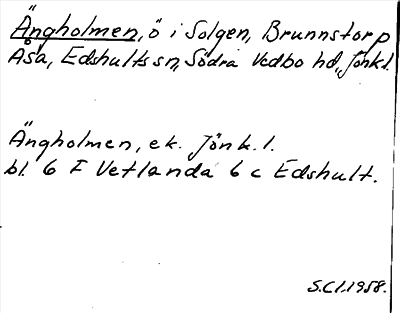 Ängholmen, ö i Solgen, Brunnstorp
Åsa, Edshults sn, Södra Vedbo hd, Jönk.l.
Ängholmen, ek. Jönk.l.
bl. 6 F Vetlanda 6 c Edshult.
S.Cl.1958.